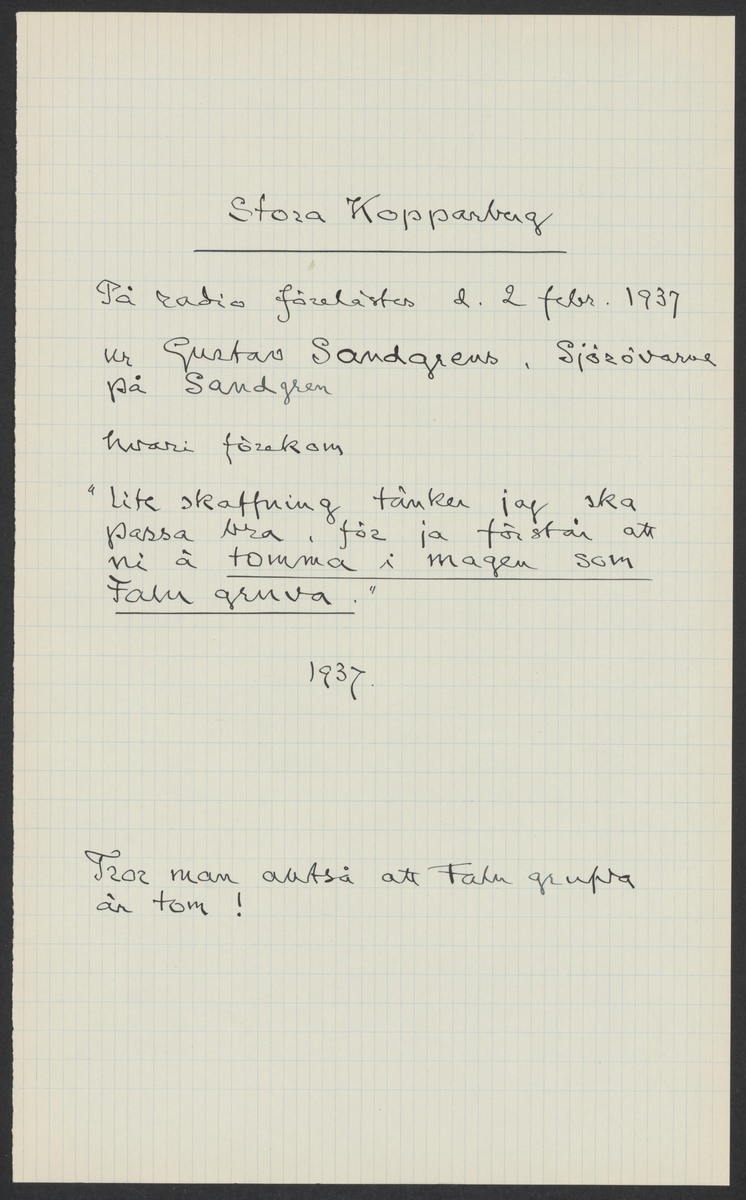 Stora Kopparberg
På radio förelästes d. 2 febr. 1937
ur Gustav Sandgrens, Sjörövarne
på Sandgren
hvari förekom
"Lite skaffning tänker jag ska
passa bra, för ja förstår att
ni ä tomma i magen som
Falu gruva."
1937.
Tror man alltså att Falu grufva
är tom!